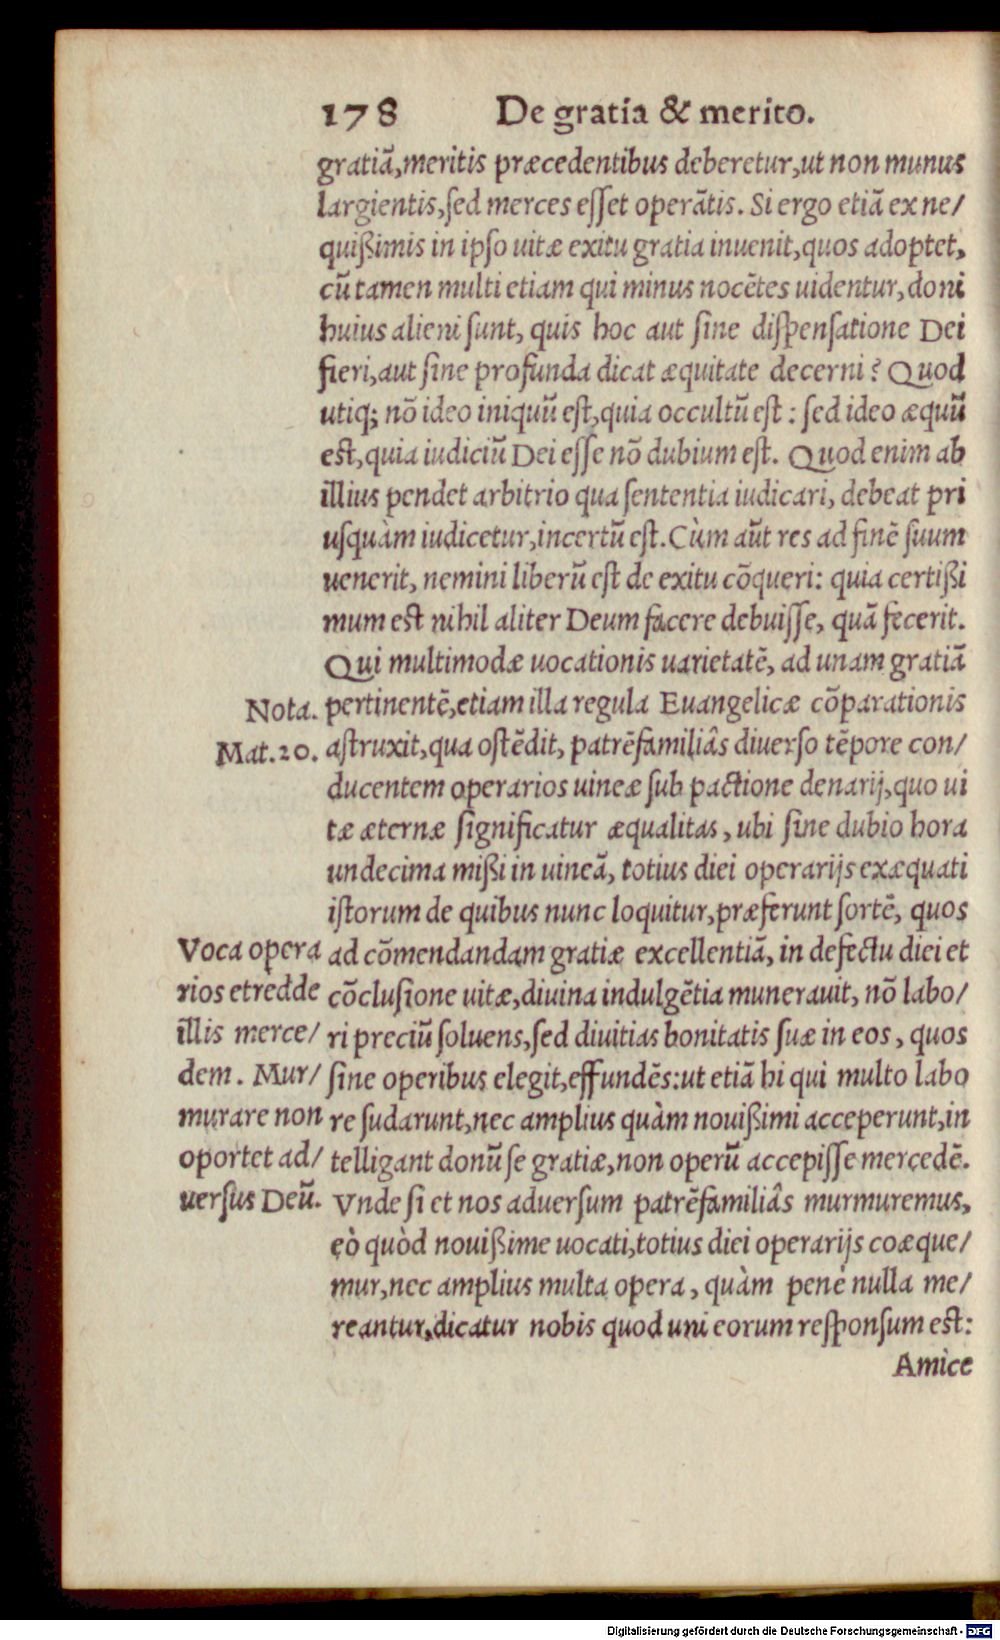 178 De gratia & merito.
gratiā,meritis præcedentibus deberetur,ut non munus
largientis,ſed merces eſſet operātis. Si ergo etiā ex ne/
quißimis in ipſo uitæ exitu gratia inuenit,quos adoptet,
cū tamen multi etiam qui minus nocētes uidentur,doni
huius alieni ſunt, quis hoc aut ſine diſpenſatione Dei
fieri,aut ſine profunda dicat æquitate decerni? Quod
utiq; nō ideo iniquū eſt,quia occultū eſt: ſed ideo æquū
eſt,quia iudiciū Dei eſſe nō dubium eſt. Quod enim ab
illius pendet arbitrio qua ſententia iudicari, debeat pri
uſquàm iudicetur,incertū eſt.Cùm aūt res ad finē ſuum
uenerit, nemini liberū eſt de exitu cōqueri: quia certißi
mum eſt nihil aliter Deum facere debuiſſe, quā fecerit.
Qui multimodæ uocationis uarietatē, ad unam gratiā
Nota. pertinentē,etiam illa regula Euangelicæ cōparationis
Mat.20. aſtruxit,qua oſtēdit, patrēfamiliâs diuerſo tēpore con/
ducentem operarios uineæ ſub pactione denarij,quo ui
tæ æternæ ſignificatur æqualitas, ubi ſine dubio hora
undecima mißi in uineā, totius diei operarijs exæquati
iſtorum de quibus nunc loquitur,præferunt ſortē, quos
Voca opera ad cōmendandam gratiæ excellentiā, in defectu diei et
rios et redde cōcluſione uitæ,diuina indulgētia munerauit, nō labo/
illis merce/ ri preciū ſoluens,ſed diuitias bonitatis ſuæ in eos, quos
dem. Mur/ ſine operibus elegit,effundēs:ut etiā hi qui multo labo
murare non re ſudarunt,nec amplius quàm nouißimi acceperunt,in
oportet ad/ telligant donū ſe gratiæ,non operū accepiſſe mercedē.
uerſus Deū. Vnde ſi et nos aduerſum patrēfamiliâs murmuremus,
eò quòd nouißime uocati,totius diei operarijs coæque/
mur,nec amplius multa opera, quàm penè nulla me/
reantur,dicatur nobis quod uni eorum reſponſum eſt:
Amice
Digitalisierung gefördert durch die Deutsche Forschungsgemeinschaft - DFG